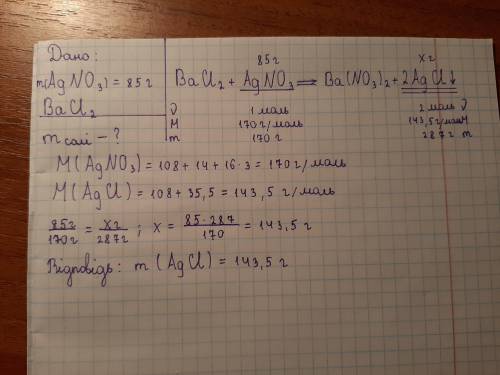 Дано:
m(AgNO₃) = 85 г
BaCl₂
m солі – ?
85 г        x г
BaCl₂ + AgNO₃ ⟹ Ba(NO₃)₂ + 2AgCl↓
ν 1 моль        2 моль ν
M 170 г/моль        143,5 г/моль M
m 170 г        287 г m
M(AgNO₃) = 108 + 14 + 16·3 = 170 г/моль
M(AgCl) = 108 + 35,5 = 143,5 г/моль
85г/170г = xг/287г ; x = 85·287/170 = 143,5 г
Відповідь: m (AgCl) = 143,5 г